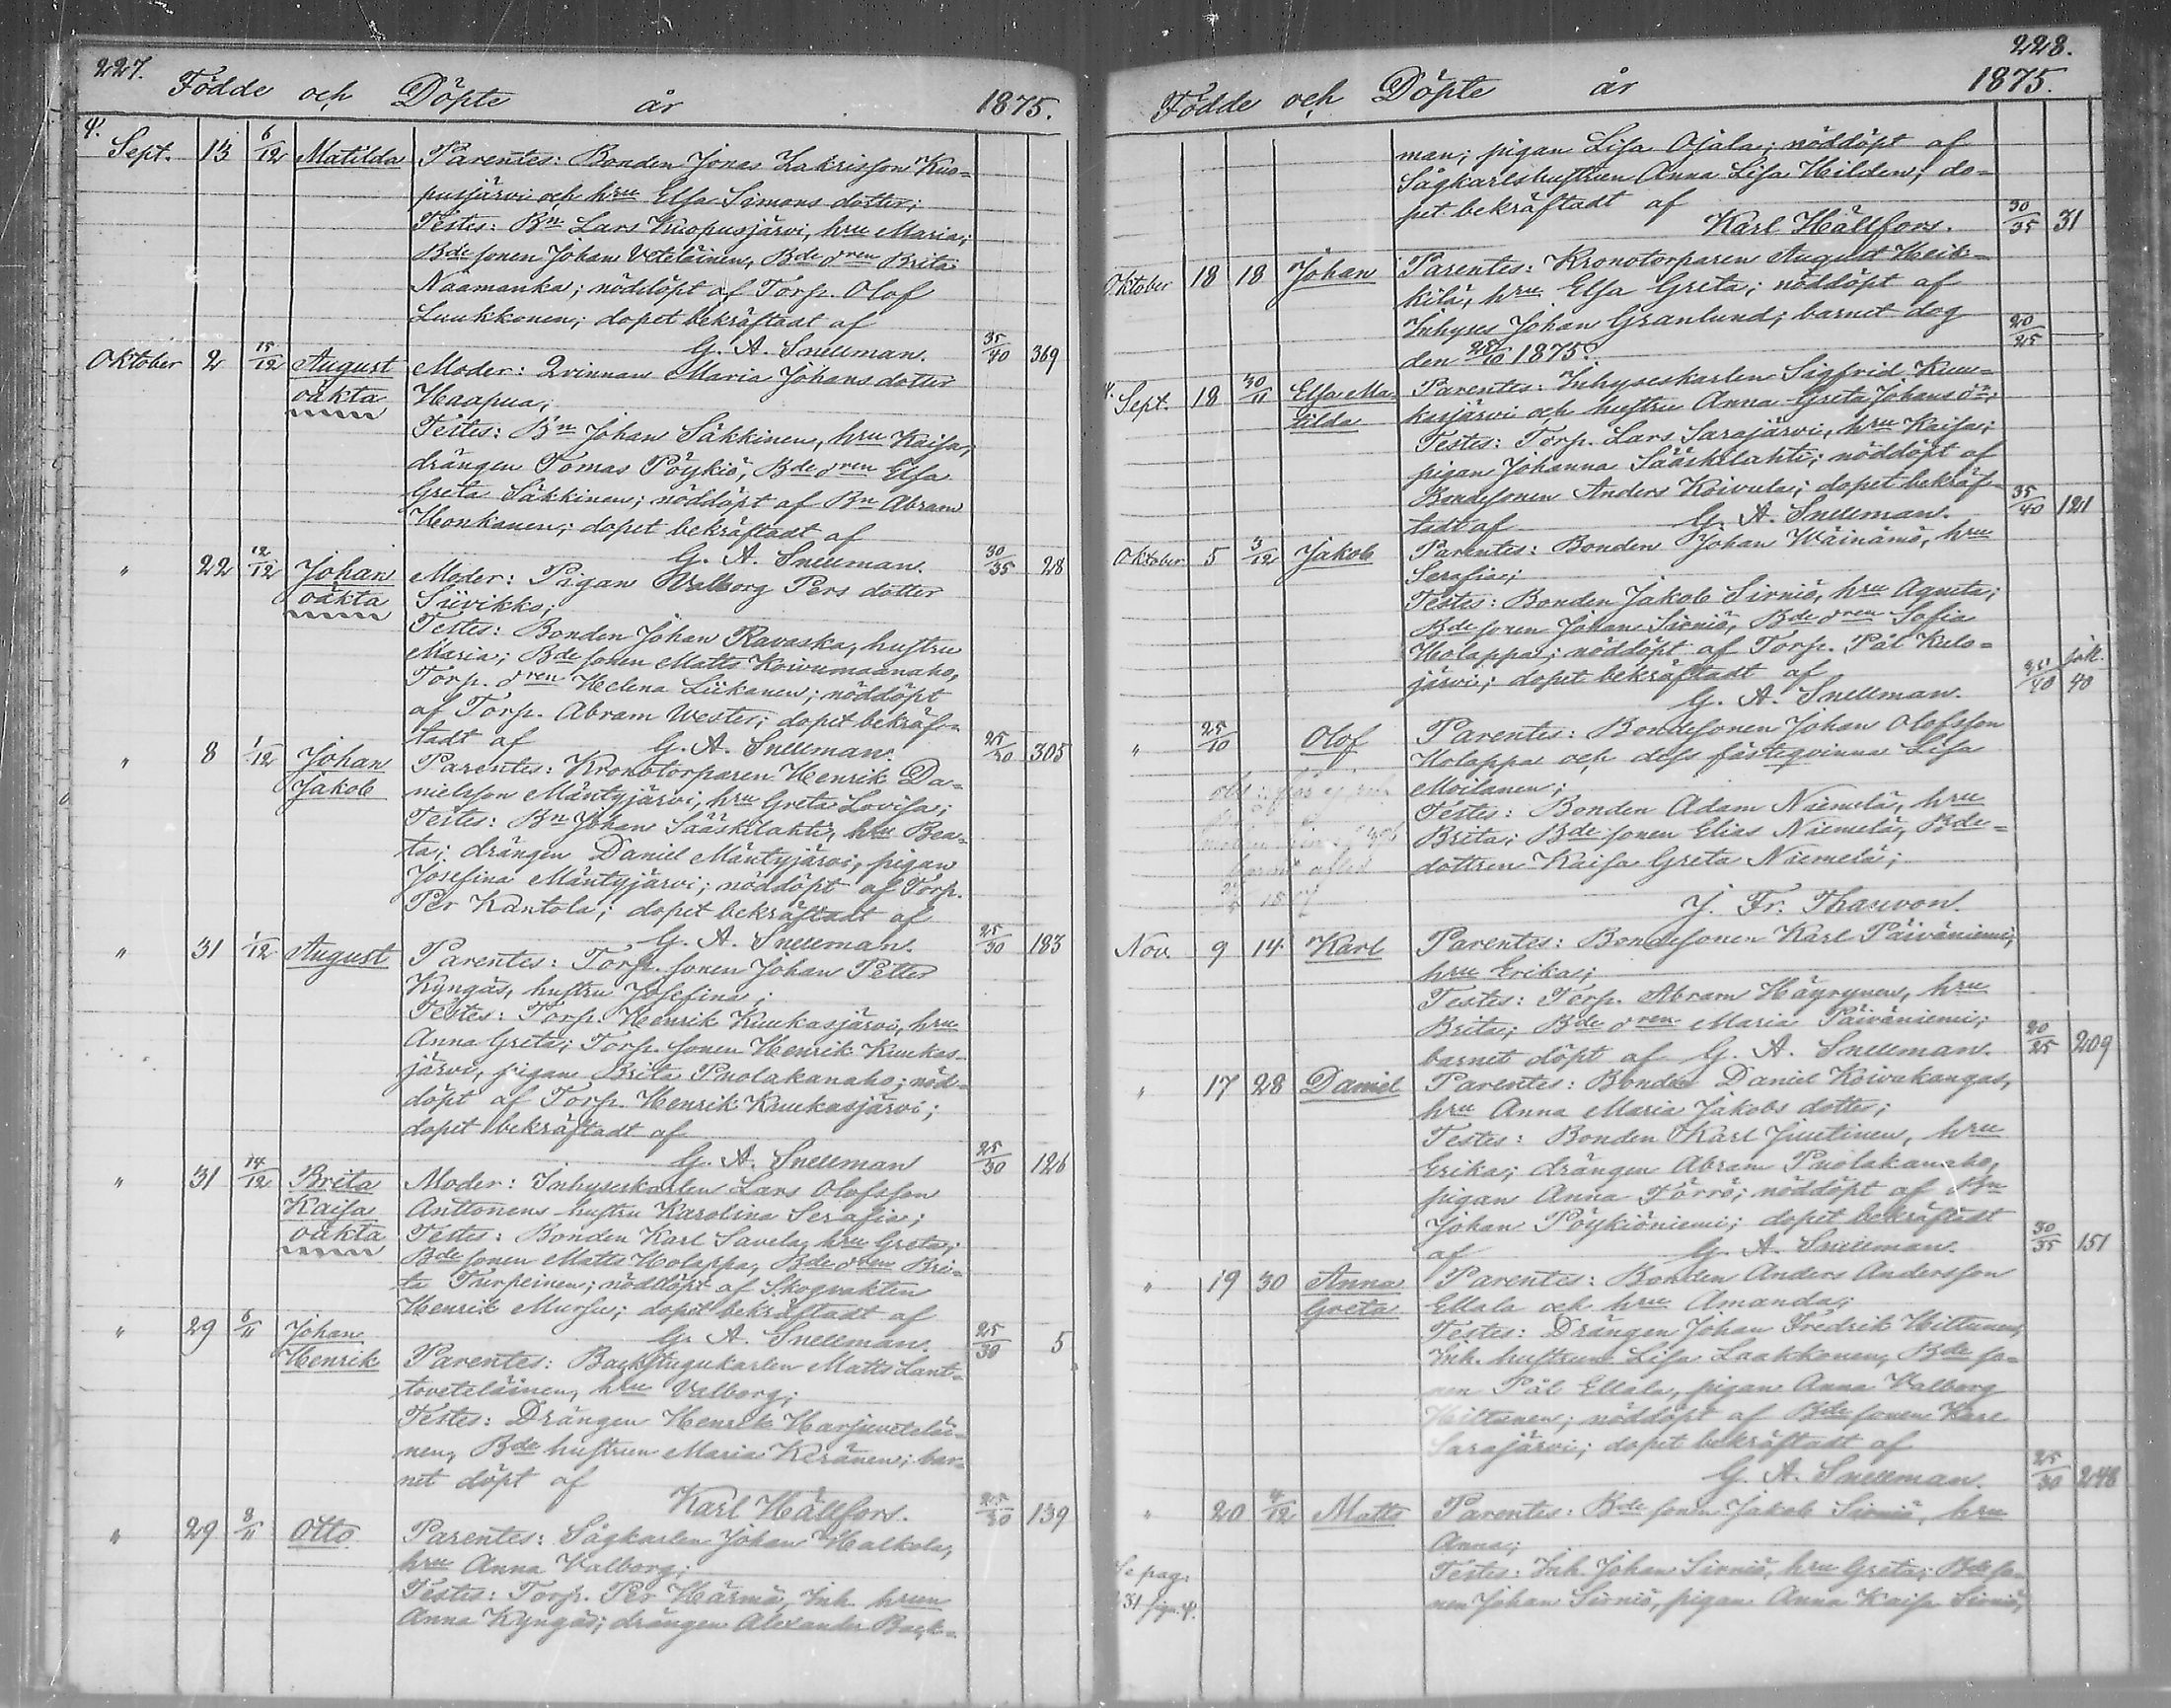 227.
Födde och Döpte år 1875.
φ. Sept. 13 6/12 Matilda Parentes: Bonden Jonas Zakrisson Kuo-
pusjärvi och hru Elsa Simons dotter;
Testes: Bn Lars Kuopusjärvi, hru Maria;
Bde sonen Johan Veteläinen, Bde dren Brita
Naamanka; nöddöpt af Torp. Olof
Luukkonen; dopet bekräftadt af
G. A. Snellman. 35/40 369
Oktober 2 15/12 August Moder: Qvinnan Maria Johans dotter
oäkta Haapua;
Testes: Bn Johan Säkkinen, hru Kaisa,
drängen Tomas Pöykiö, Bde dren Elsa
Greta Säkkinen; nöddöpt af Bn Abram
Honkanen; dopet bekräftadt af
G. A. Snellman. 30/35 28
" 22 12/12 Johan Moder: Pigan Valborg Pers dotter
oäkta Siivikko;
Testes: Bonden Johan Ravaska, hustru
Maria; Bde sonen Matts Koivumaanaho,
Torp. dren Helena Liikanen; nöddöpt
af Torp. Abram Wester; dopet bekräf-
tadt af G. A. Snellman. 25/30 305
" 8 1/12 Johan Parentes: Kronotorparen Henrik Da-
Jakob nielsson Mäntyjärvi, hru Greta Lovisa;
Testes: Bn Johan Sääskilahti, hru Bea-
ta; drängen Daniel Mäntyjärvi, pigan
Josefina Mäntyjärvi; nöddöpt af Torp.
Per Kantola; dopet bekräftadt af
G. A. Snellman. 25/30 183
" 31 1/12 August Parentes: Torp. sonen Johan Petter
Kyngäs, hustru Josefina;
Testes: Torp. Henrik Kuukasjärvi, hru
Anna Greta; Torp. sonen Henrik Kuukas-
järvi, pigan Brita Puolakanaho; nöd-
döpt af Torp. Henrik Kuukasjärvi;
dopet bekräftadt af
G. A. Snellman 25/30 126
" 31 14/12 Brita Moder: Inhyseskarlen Lars Olofsson
Kaisa Anttonens hustru Karolina Serafia;
oäkta Testes: Bonden Karl Savela, hru Greta;
Bde sonen Matts Holappa, Bde dren Bri-
ta Turpeinen; nöddöpt af Skogvakten
Henrik Mursu; dopet bekräftadt af
G. A. Snellman. 25/30 5
" 29 6/11 Johan
Henrik Parentes: Backstugukarlen Matts Lant-
toveteläinen, hru Valborg;
Testes: Drängen Henrik Harjuvetеläi-
nen, Bde hustrun Maria Keränen; bar-
net döpt af
Karl Hällfors. 25/30 139
" 29 8/11 Otto Parentes: Sågkarlen Johan Halkola,
hru Anna Valborg;
Testes: Torp. Per Härmä, Inh. hrun
Anna Kyngäs; drängen Alexander Back-
228.
Födde och Döpte år 1875.
man; pigan Lisa Ojala; nöddöpt af
Sågkarlshustrun Anna Lisa Hilden; do-
pet bekräftadt af
Karl Hällfors. 30/35 31
Oktober 18 18 Johan Parentes: Kronotorparen August Heik-
kilä, hru Elsa Greta; nöddöpt af
Inhyses Johan Granlund; barnet dog
den 25/10 1875. 20/25
φ. Sept. 18 30/11 Elsa Ma- Parentes: Inhyseskarlen Sigfrid Kuu-
tilda kasjärvi och hustru Anna Greta Johans dr;
Testes: Torp. Lars Sarajärvi, hru Kaisa;
pigan Johanna Sääskilahti; nöddöpt af
Bondesonen Anders Koivula; dopet bekräf-
tadt af G. A. Snellman. 35/40 121
Oktober 5 3/12 Jakob Parentes: Bonden Johan Wäinämö, hru
Serafia;
Testes: Bonden Jakob Sirniö, hru Agneta;
Bde sonen Johan Sirniö, Bde dren Sofia
Holappa; nöddöpt af Torp. Pål Kulo-
järvi; dopet bekräftadt af
G. A. Snellman. 35/40 40
" 25/10 Olof Parentes: Bondesonen Johan Olofsson
Holappa och dess fästeqvinna Lisa
Moilanen;
Testes: Bonden Adam Niemelä, hru
Brita; Bde sonen Elias Niemelä, Bde-
dottren Kaisa Greta Niemelä;
J. Fr. Thauvon.
Nov. 9 14 Karl Parentes: Bondesonen Karl Päiväniemi,
hru Erika;
Testes: Torp. Abram Häyrynen, hru
Brita; Bde dren Maria Päiväniemi;
barnet döpt af G. A. Snellman. 20/25 209
" 17 28 Daniel Parentes: Bonden Daniel Koivukangas,
hru Anna Maria Jakobs dotter;
Testes: Bonden Karl Juutinen, hru
Erika; drängen Abram Puolakanaho,
pigan Anna Törrö; nöddöpt af Bn
Johan Pöykiöniemi; dopet bekräftadt
af G. A. Snellman. 30/35 151
" 19 30 Anna Parentes: Bonden Anders Andersson
Greta Ellala och hru Amanda;
Testes: Drängen Johan Fredrik Hiltunen,
Inh. hustrun Lisa Laakkonen, Bde so-
nen Pål Ellala, pigan Anna Valborg
Hiltunen; nöddöpt af Bde sonen Karl
Sarajärvi; dopet bekräftadt af
G. A. Snellman. 25/30 248
" 20 4/12 Matts Parentes: Bde sonen Jakob Sirniö, hru
Anna;
Se pag. Testes: Inh. Johan Sirniö, hru Greta; Bde so-
231 sign. φ. nen Johan Sirniö, pigan Anna Kaisa Sirniö,